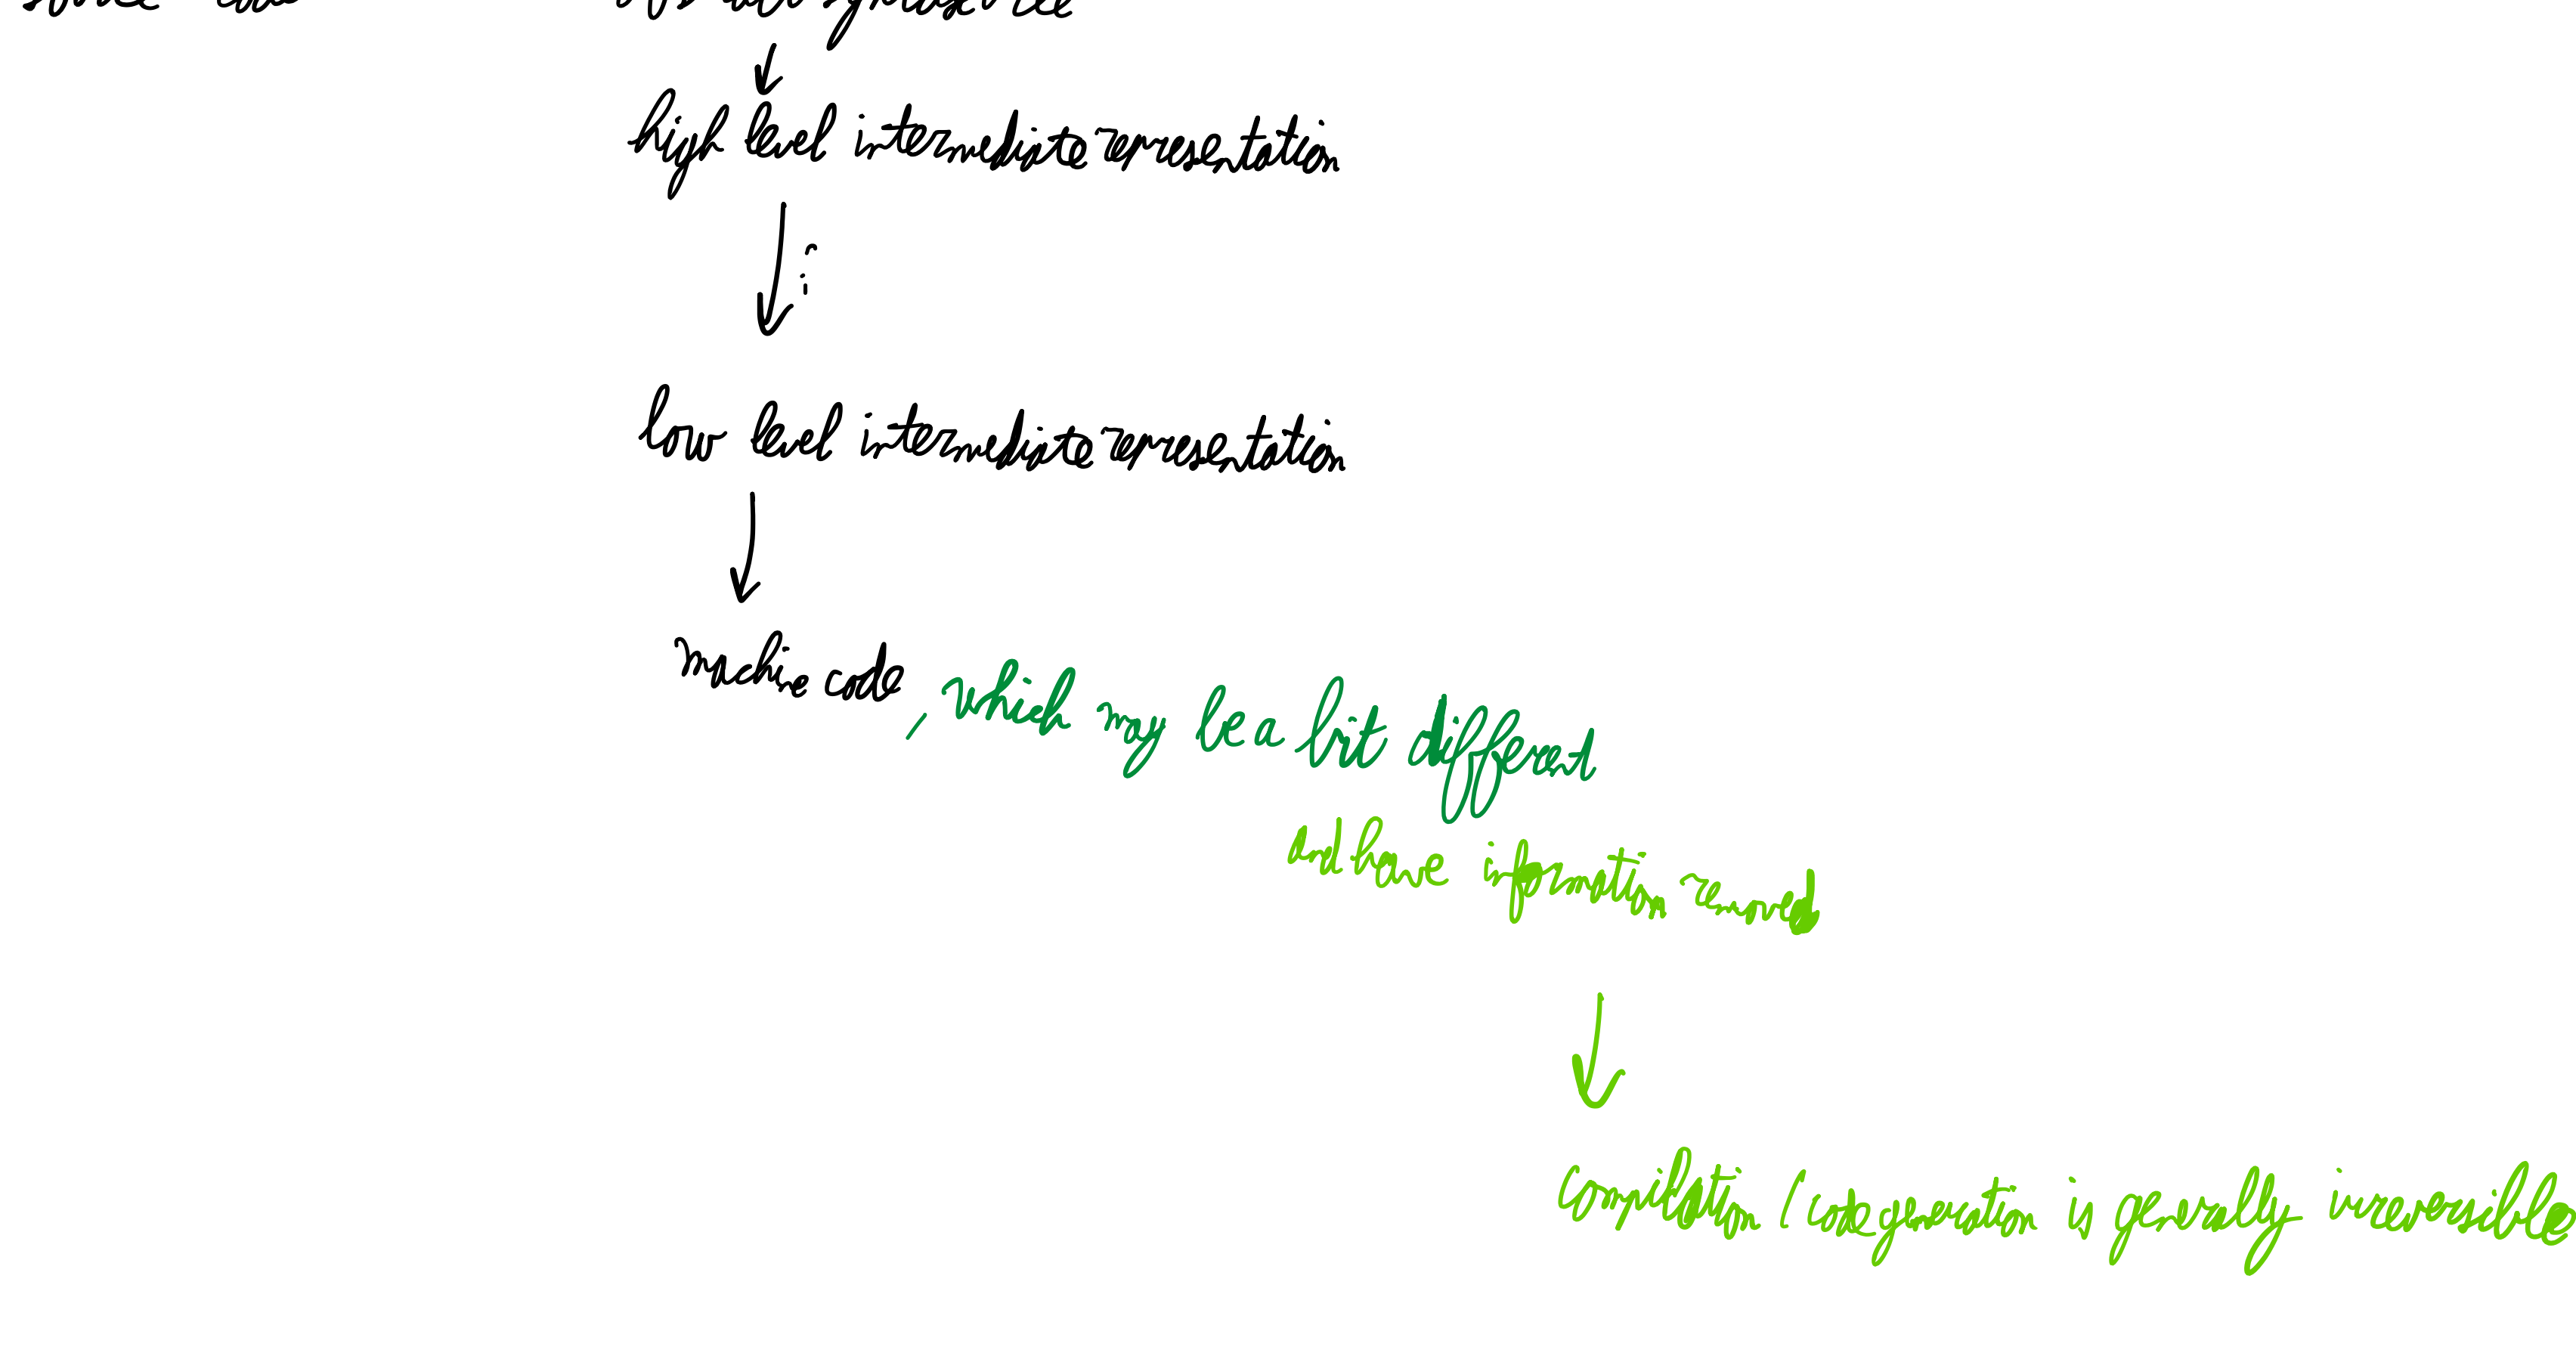 source code abstract syntax tree
high level intermediate representation
low level intermediate representation
machine code, which may be a bit different
and have information removed
compilation / code generation is generally irreversible